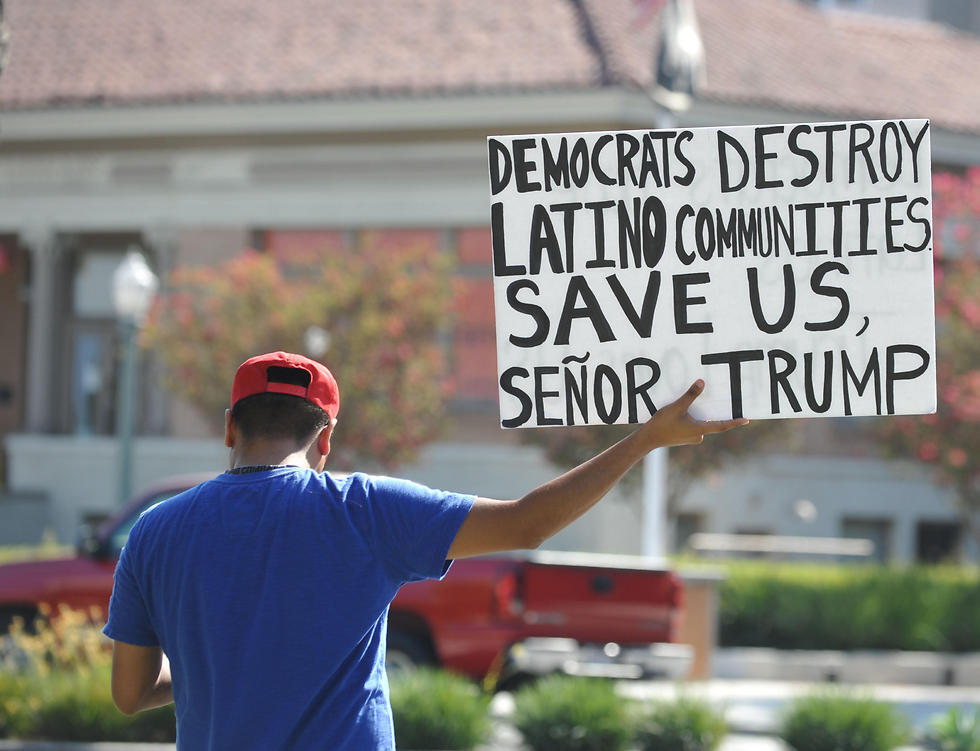 DEMOCRATS DESTROY
LATINO COMMUNITIES
SAVE US,
SEÑOR TRUMP